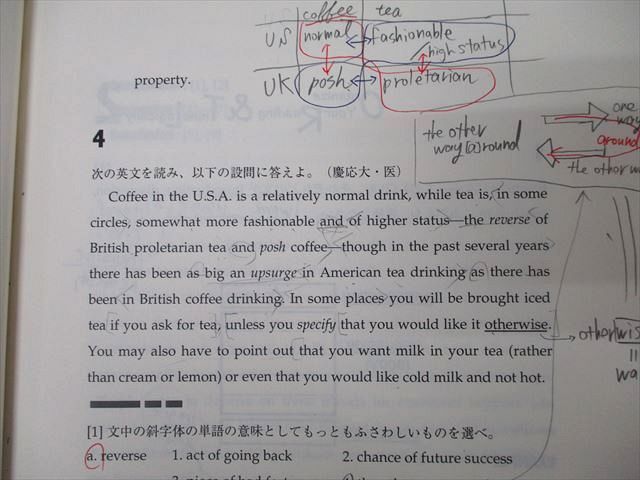 coffee tea
US normal fashionable
/high status
UK posh proletarian
property.
one way
the other way [a]round
around
the other
4
次の英文を読み、以下の設問に答えよ。（慶応大・医）
Coffee in the U.S.A. is a relatively normal drink, while tea is, in some
circles, somewhat more fashionable and of higher status—the reverse of
British proletarian tea and posh coffee—though in the past several years
there has been as big an upsurge in American tea drinking as there has
been in British coffee drinking. In some places you will be brought iced
tea if you ask for tea, unless you specify that you would like it otherwise.
You may also have to point out that you want milk in your tea (rather
than cream or lemon) or even that you would like cold milk and not hot.
otherwis
||
wa
[1] 文中の斜字体の単語の意味としてもっともふさわしいものを選べ。
a. reverse 1. act of going back 2. chance of future success